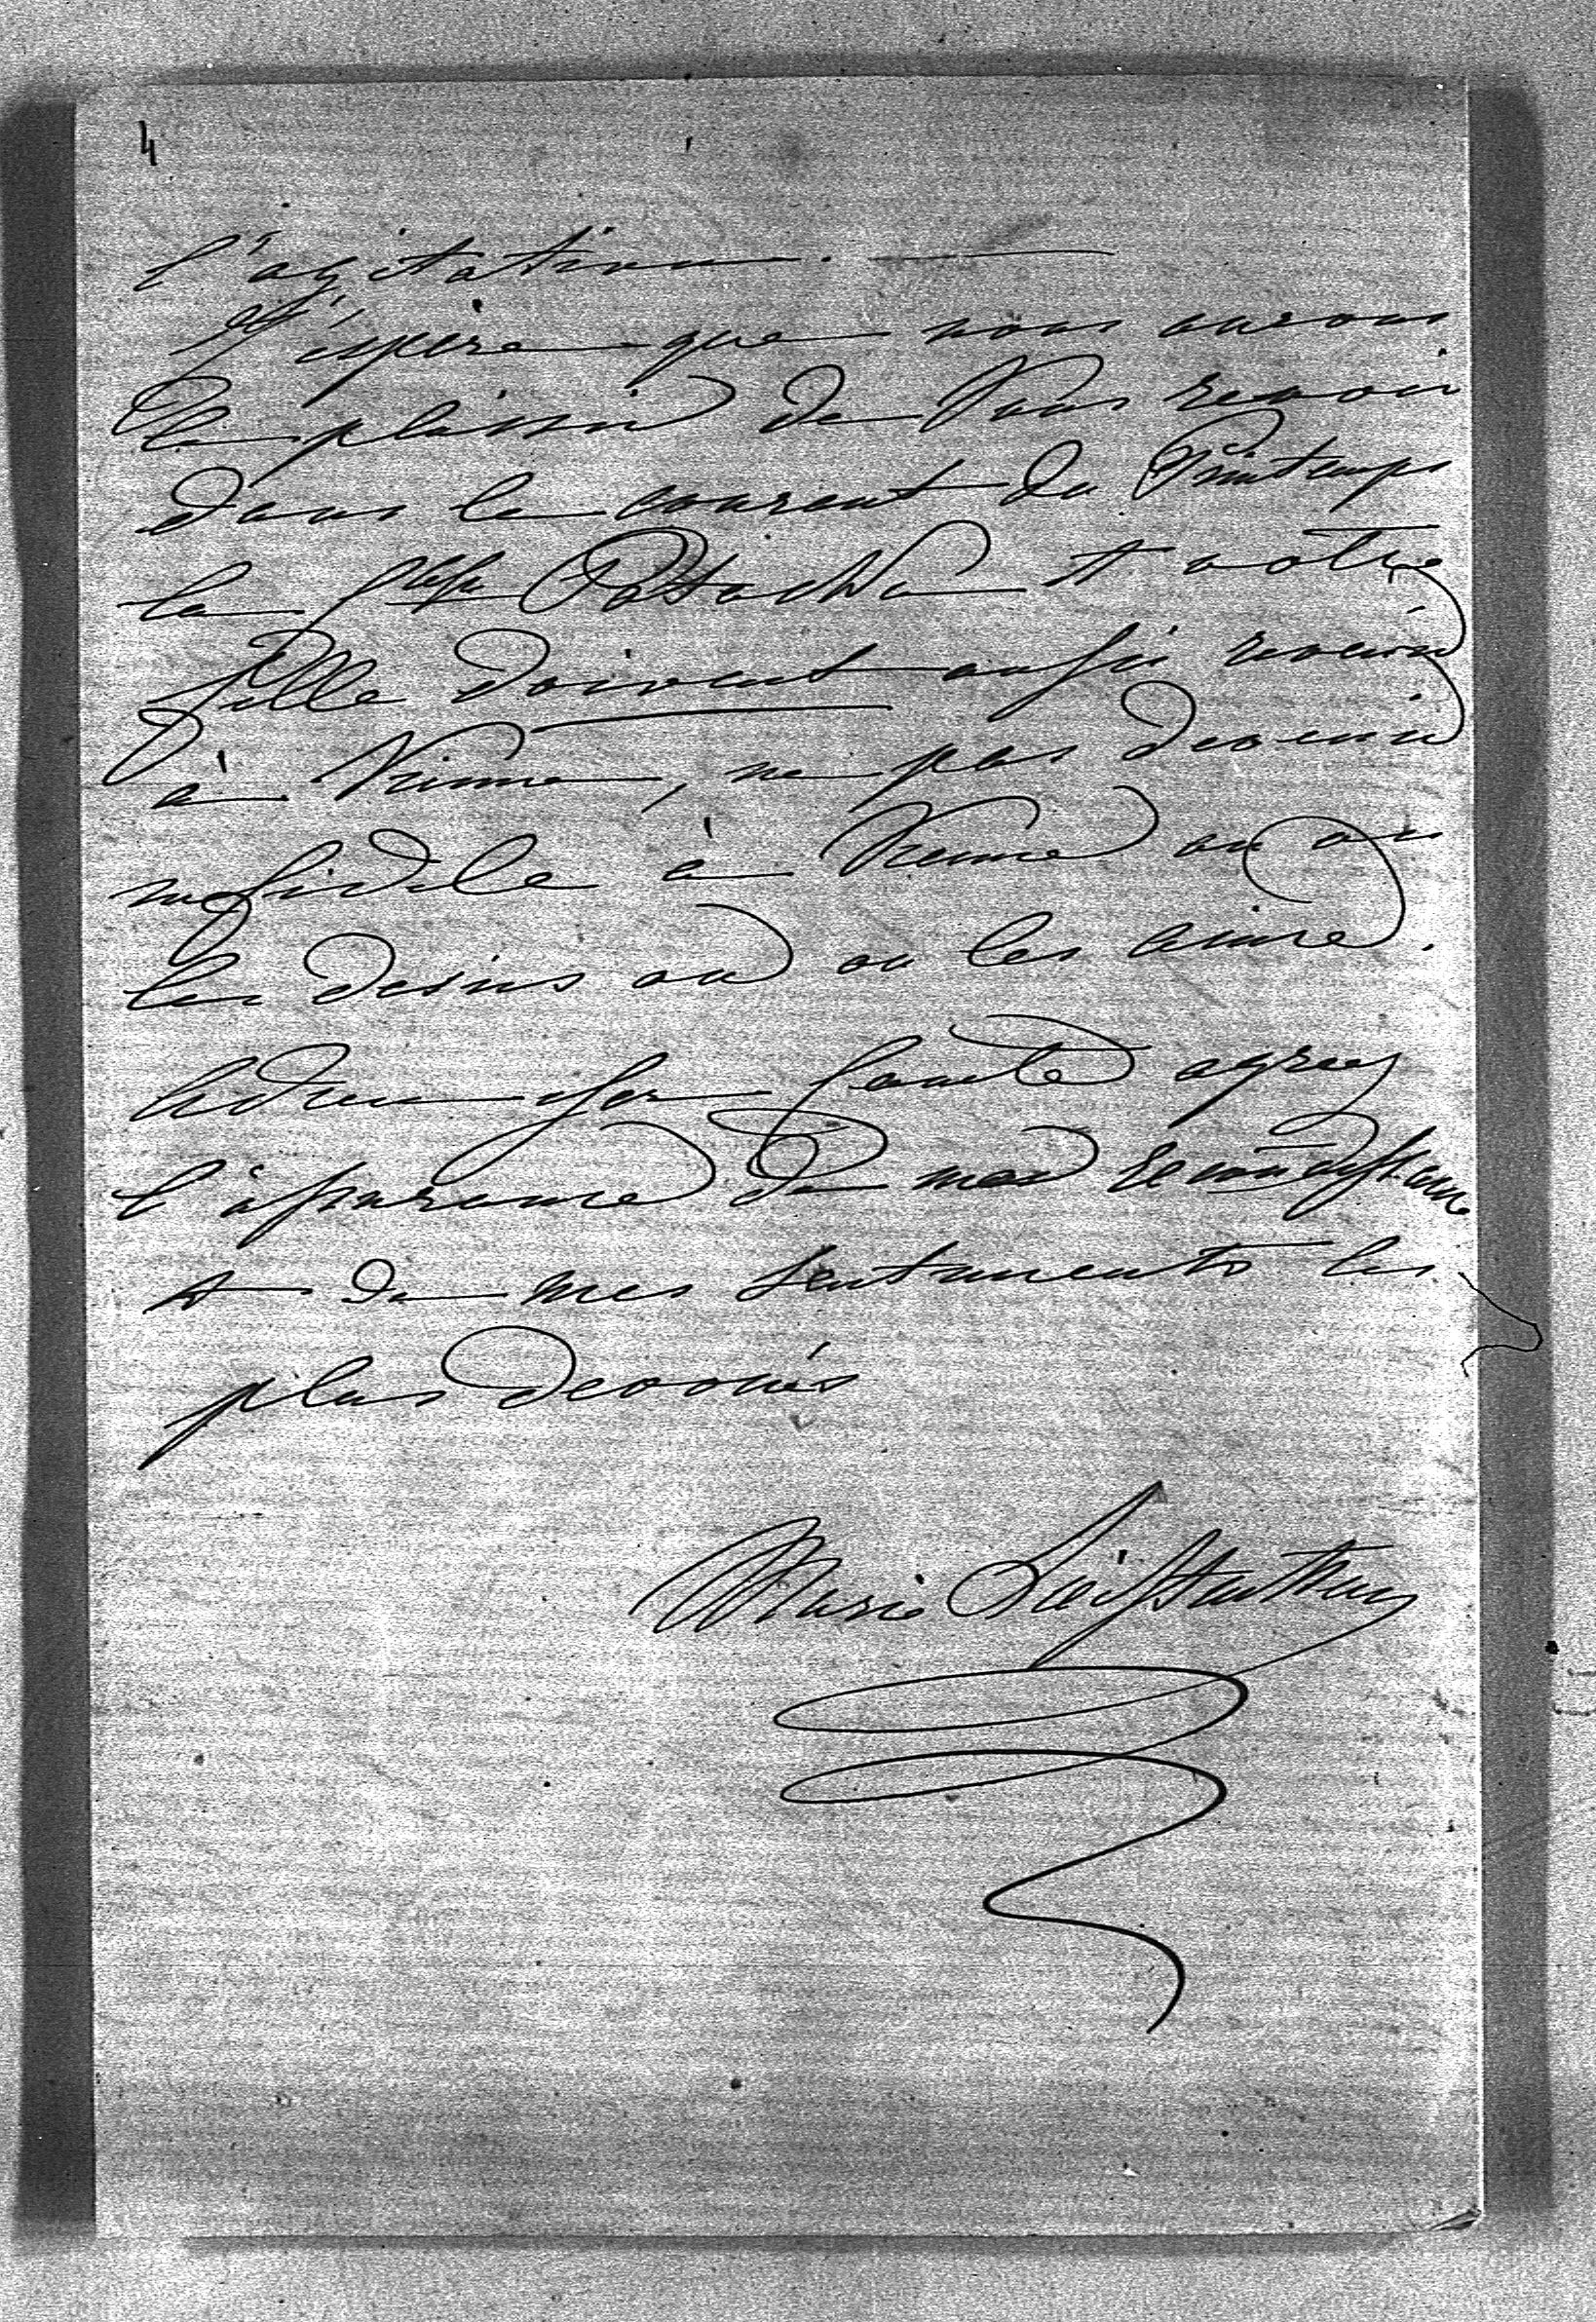 4
l'agitation. —
J'espère que nous aurons
le plaisir de Vous revoir
dans le courent du Printemps
la Psse et votre
fille doivent aussi revenir
à Vienne, ne pas devenir
infidele à Vienne ou on
les desirs ou on les aime.
Adieu cher Comte agreez
l'assurance de mes
et de mes sentiments les
plus devoués
Marie